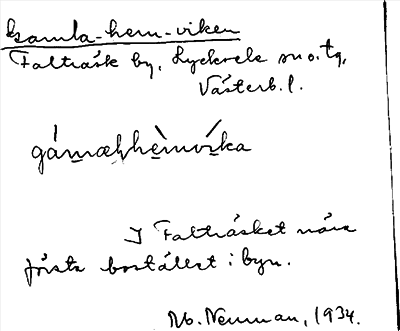 Gamla-hem-viken
Falträsk by, Lycksele sn o. tg,
Västerb. l.
I Falträsket nära
första bostället i byn.
Nb. Nenman, 1934.